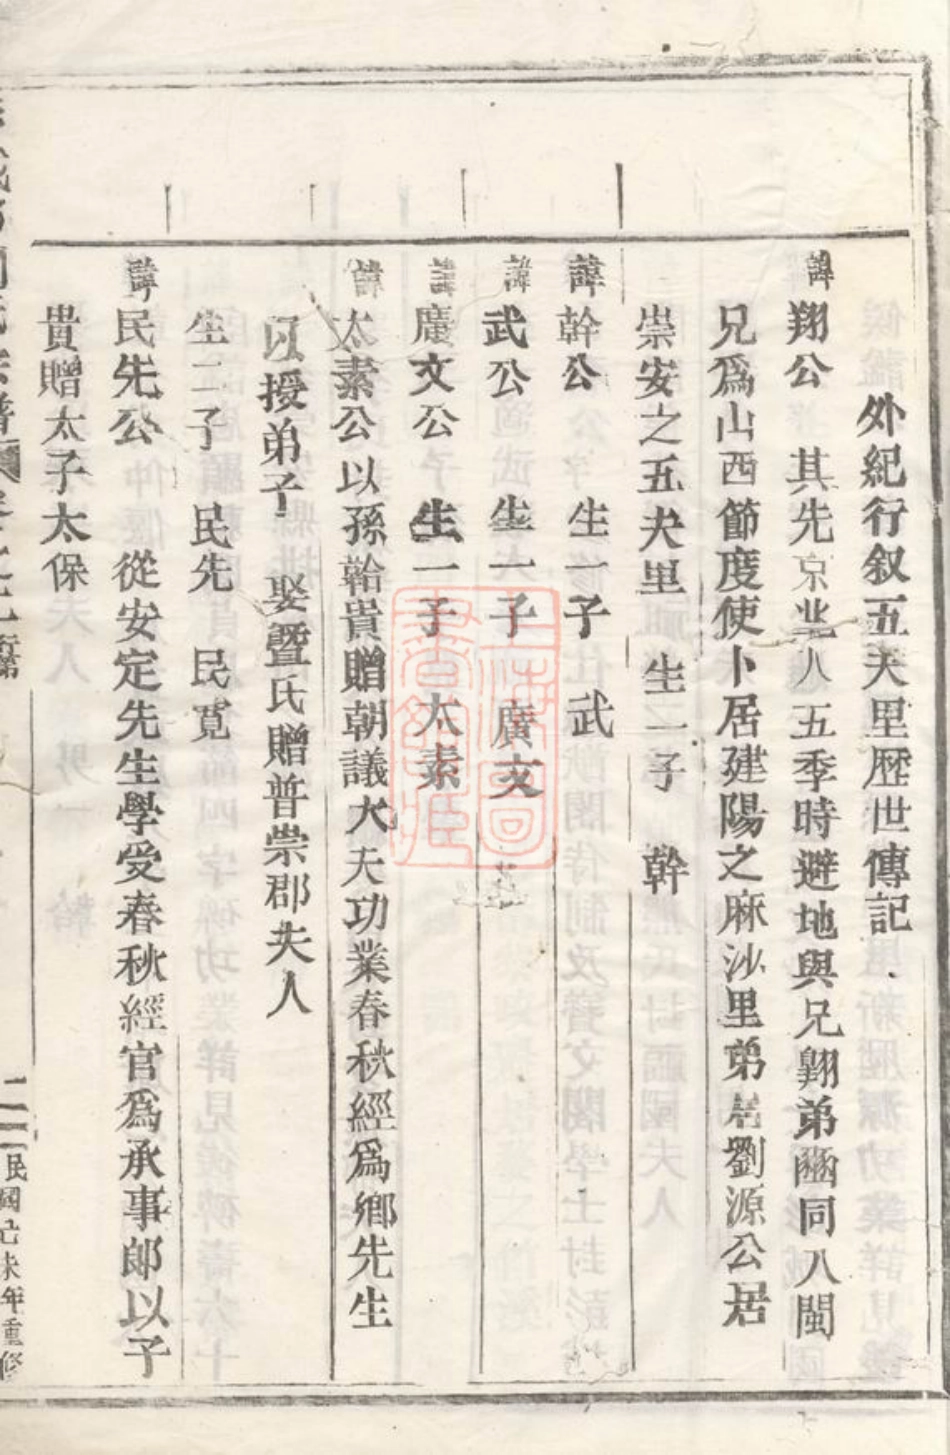 外紀行叙五夫里歷世傳記
諱翔公 其先京兆人五季時避地與兄翺弟豳同入閩
兄爲山西節度使卜居建陽之麻沙里弟居劉源公居
崇安之五夫里 生一子 幹
諱幹公 生一子 武
諱武公 生一子 廣文
諱廣文公 生一子 太素
諱太素公以孫韐貴贈朝議大夫功業春秋經爲鄉先生
以授弟子 娶曁氏贈普崇郡夫人
生二子 民先 民寬
諱民先公 從安定先生學受春秋經官爲承事郎以子
貴贈太子太保
民國己未年重修